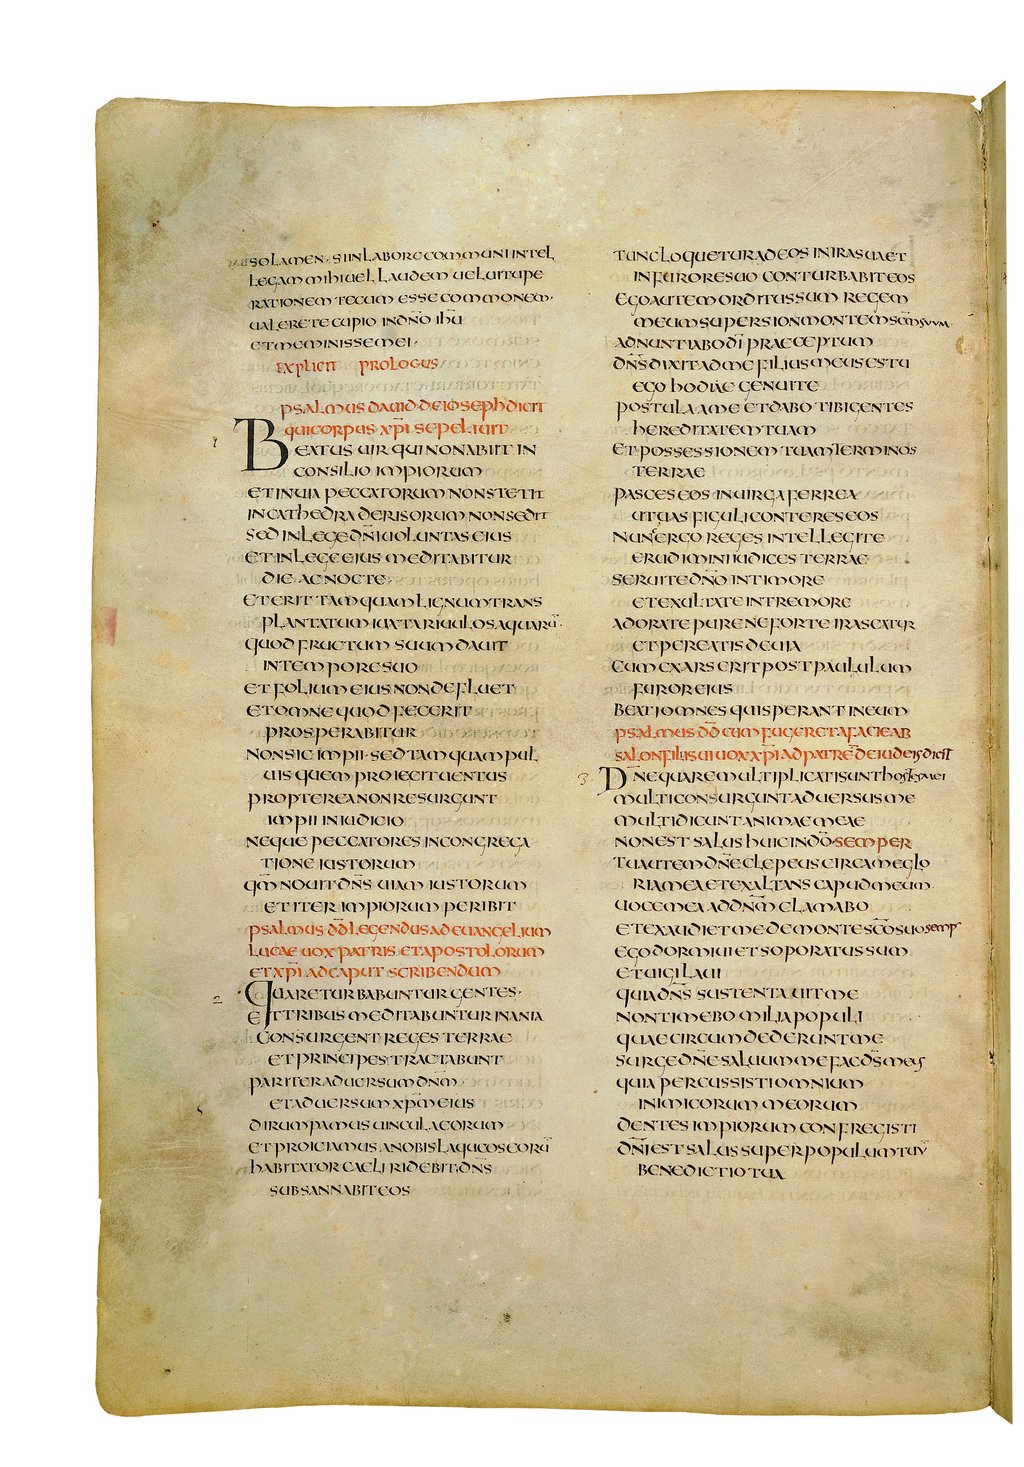 SOLAMEN· SI IN LABORE COMMUNI INTEL
LEGAM MIHI UEL LAUDEM UEL UITUPE
RATIONEM TECUM ESSE COMMONEM·
UALERE TE CUPIO IN DN̄O IHŪ
ET MEMINISSE MEI·
EXPLICIT PROLOGUS
PSALMUS DAUID DE IOSEPH DICIT
QUI CORPUS XP̄I SEPELIUIT
1 BEATUS UIR QUI NON ABIIT IN
CONSILIO IMPIORUM
ET IN UIA PECCATORUM NON STETIT
IN CATHEDRA DERISORUM NON SEDIT
SED IN LEGE DN̄I UOLUNTAS EIUS
ET IN LEGE EIUS MEDITABITUR
DIE AC NOCTE
ET ERIT TAMQUAM LIGNUM TRANS
PLANTATUM IUXTA RIUULOS AQUARŪ·
QUOD FRUCTUM SUUM DABIT
IN TEMPORE SUO
ET FOLIUM EIUS NON DEFLUET
ET OMNE QUOD FECERIT
PROSPERABITUR
NON SIC IMPII· SED TAMQUAM PUL
UIS QUEM PROIECIT UENTUS
PROPTEREA NON RESURGUNT
IMPII IN IUDICIO
NEQUE PECCATORES IN CONGREGA
TIONE IUSTORUM
QM̄ NOUIT DN̄S UIAM IUSTORUM
ET ITER IMPIORUM PERIBIT
PSALMUS DD̄ LEGENDUS AD EUANGELIUM
LUCAE UOX PATRIS ET APOSTOLORUM
ET XP̄I AD CAPUT SCRIBENDUM
2 QUARE TURBABUNTUR GENTES·
ET TRIBUS MEDITABUNTUR INANIA
CONSURGENT REGES TERRAE
ET PRINCIPES TRACTABUNT
PARITER ADUERSUM DN̄M
ET ADUERSUM XP̄M EIUS
DIRUMPAMUS UINCULA EORUM
ET PROICIAMUS A NOBIS LAQUEOS EORŪ
HABITATOR CAELI RIDEBIT· DN̄S
SUBSANNABIT EOS
TUNC LOQUETUR AD EOS IN IRA SUA ET
IN FURORE SUO CONTURBABIT EOS
EGO AUTEM ORDITUS SUM REGEM
MEUM SUPER SION MONTEM SC̄M SUUM
ADNUNTIABO DĪ PRAECEPTUM
DN̄S DIXIT AD ME FILIUS MEUS ES TU
EGO HODIAE GENUI TE
POSTULA A ME ET DABO TIBI GENTES
HEREDITATEM TUAM
ET POSSESSIONEM TUAM TERMINOS
TERRAE
PASCES EOS IN UIRGA FERREA
UT UAS FIGULI CONTERES EOS
NUNC ERGO REGES INTELLEGITE
ERUDIMINI IUDICES TERRAE
SERUITE DN̄O IN TIMORE
ET EXULTATE IN TREMORE
ADORATE PURE NE FORTE IRASCATUR
ET PEREATIS DE UIA
CUM EXARSERIT POST PAULULUM
FUROR EIUS
BEATI OMNES QUI SPERANT IN EUM
PSALMUS DD̄ CUM FUGERET A FACIE AB
SALON FILII SUI UOX XP̄I AD PATRĒ DE IUDEIS DICIT
3 DN̄E QUARE MULTIPLICATI SUNT HOSTES MEI
MULTI CONSURGUNT ADUERSUS ME
MULTI DICUNT ANIMAE MEAE
NON EST SALUS HUIC IN DŌ SEMPER
TU AUTEM DN̄E CLEPEUS CIRCA ME GLO
RIA MEA ET EXALTANS CAPUD MEUM
UOCE MEA AD DN̄M CLAMABO
ET EXAUDIET ME DE MONTE SC̄O SUO SEMP̄
EGO DORMIUI ET SOPORATUS SUM
ET UIGILAUI
QUIA DN̄S SUSTENTAUIT ME
NON TIMEBO MILIA POPULI
QUAE CIRCUMDEDERUNT ME
SURGE DN̄E SALUUM ME FAC DS̄ MEUS
QUIA PERCUSSISTI OMNIUM
INIMICORUM MEORUM
DENTES IMPIORUM CONFREGISTI
DN̄I EST SALUS SUPER POPULUM TUŪ
BENEDICTIO TUA